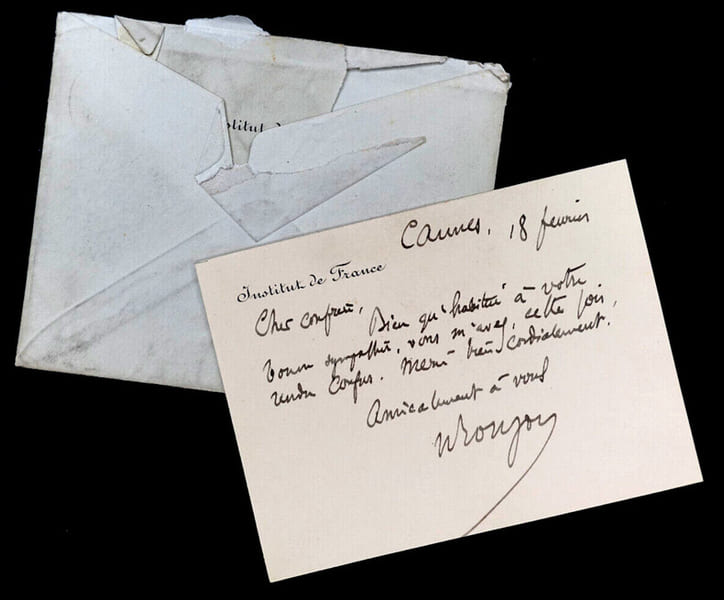 nstitut d
Cannes, 18 fevrier
Institut de France
Cher confrère,
Bien qu'habitué à votre
bonne sympathie, vous m'avez, cette fois,
rendu confus. Merci bien cordialement.
Amicalement à vous